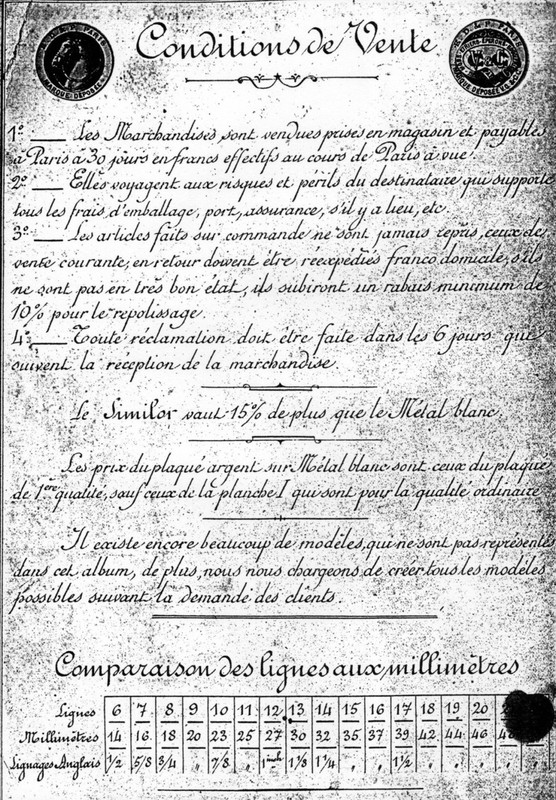 Conditions de Vente
MARQUE DEPOSÉE
1º. — Les Marchandises sont vendues prises en magasin et payables
à Paris à 30 jours en francs effectifs au cours de Paris à vue.
2º. — Elles voyagent aux risques et périls du destinataire qui supporte
tous les frais, d'emballage, port, assurance, s'il y a lieu, etc
3º. — Les articles faits sur commande ne sont jamais repris, ceux de
vente courante, en retour doivent être réexpédiés franco domicile, s'ils
ne sont pas en très bon état, ils subiront un rabais minimum de
10% pour le repolissage.
4º. — Toute réclamation doit être faite dans les 6 jours qui
suivent la réception de la marchandise.
Le Similor vaut 15% de plus que le Métal blanc.
Les prix du plaqué argent sur Métal blanc sont ceux du plaqué
de 1ère qualité, sauf ceux de la planche I qui sont pour la qualité ordinaire
Il existe encore beaucoup de modèles, qui ne sont pas représentés
dans cet album, de plus, nous nous chargeons de créer tous les modèles
possibles suivant la demande des clients.
Comparaison des lignes aux millimètres
Lignes 6 7 8 9 10 11 12 13 14 15 16 17 18 19 20
Millimètres 14 16 18 20 23 25 27 30 32 35 37 39 42 44 46
Lignages Anglais 1/2 5/8 3/4 " 7/8 " 1 inch 1 1/8 1 1/4 " " 1 1/2 " " " "